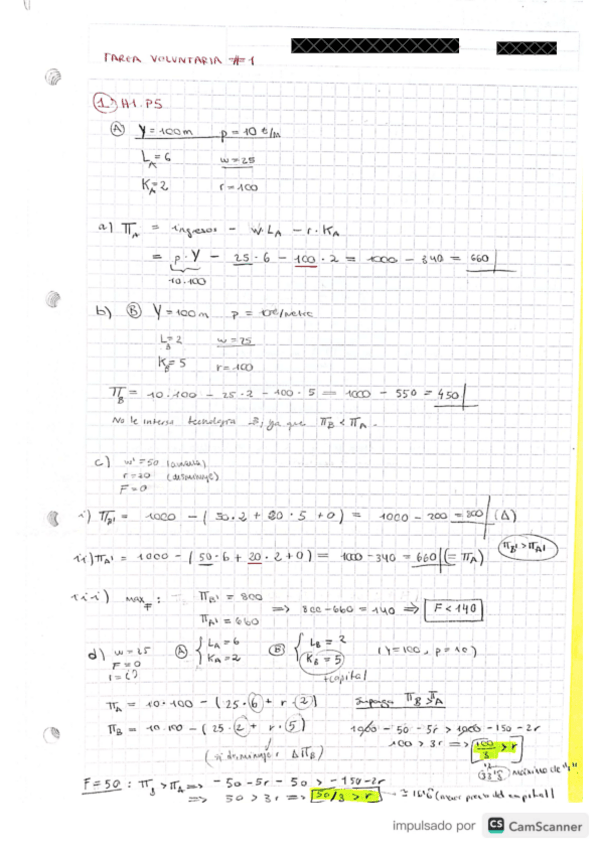 TAREA VOLUNTARIA #1
1. A1.P5
A Y=100m p = 10 €/m
L_A=6 w=25
K_A=2 r=100
a) Π_A = ingresos - w·L_A - r·K_A
= p·Y - 25·6 - 100·2 = 1000 - 340 = 660
10·100
b) B Y=100m p = 10€/metro
L_B=2 w=25
K_B=5 r=100
Π_B = 10·100 - 25·2 - 100·5 = 1000 - 550 = 450
No le interesa tecnología B, ya que Π_B < Π_A.
c) w'=50 (aumenta)
r=20 (disminuye)
F=0
i) Π_B' = 1000 - (50·2 + 20·5 + 0) = 1000 - 200 = 800 (Δ)
ii) Π_A' = 1000 - (50·6 + 20·2 + 0) = 1000 - 340 = 660 (= Π_A)
Π_B' > Π_A'
iii) max F : Π_B' = 800
Π_A' = 660
=> 800 - 660 = 140 => F < 140
d) w = 25 A { L_A = 6 B { L_B = 2 (Y=100, p=10)
F=0 K_A = 2 K_B = 5
r=¿? +capital
Π_A = 10·100 - (25·6 + r·2) Suponga Π_B > Π_A
Π_B = 10·100 - (25·2 + r·5) 1000 - 50 - 5r > 1000 - 150 - 2r
100 > 3r => 100/3 > r
(si disminuye r ΔΠ_B)
33'3 máximo de "r"
F=50 : Π_B > Π_A => -50 - 5r - 50 > -150 - 2r
=> 50 > 3r => 50/3 > r ≅ 16'6 (menor precio del capital)
impulsado por CS CamScanner